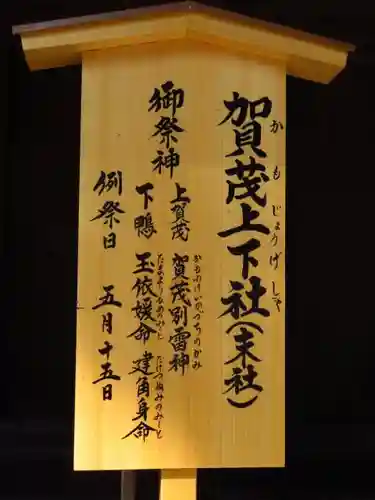 賀茂上下社（末社）
かもじょうげしゃ
御祭神
上賀茂 賀茂別雷神
かものわけいかづちのかみ
下鴨 玉依媛命 建角身命
たまよりひめのみこと たけつぬみのみこと
例祭日 五月十五日